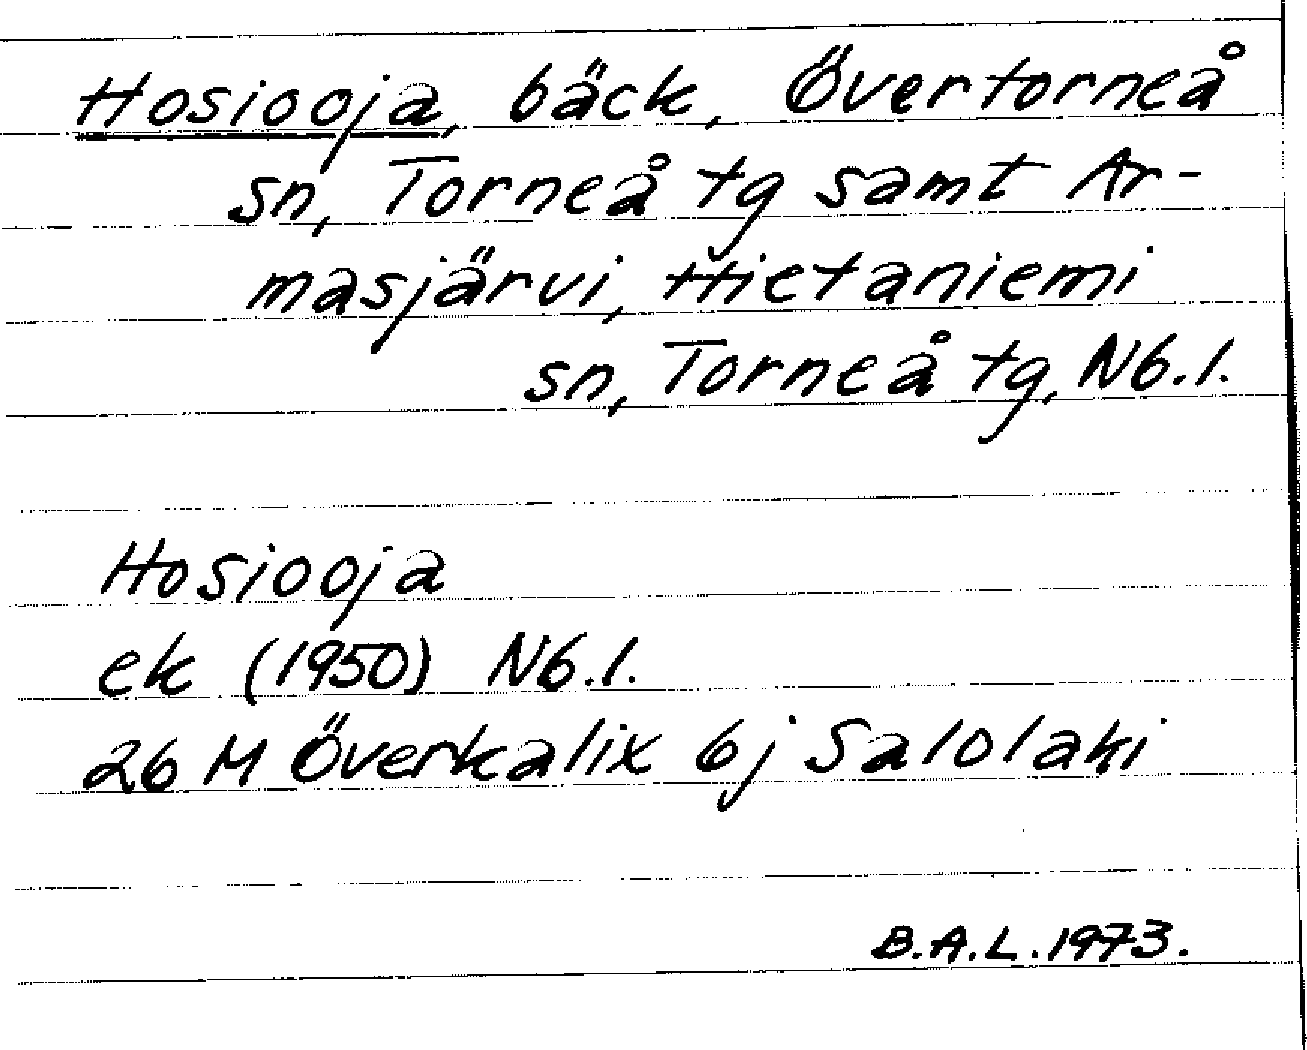 Hosiooja, bäck, Övertorneå
sn, Torneå tg samt Ar-
masjärvi, Hietaniemi
sn, Torneå tg, Nb.l.
Hosiooja
ek (1950) Nb.l.
26 M Överkalix 6j Salolaki
B.A.L. 1973.